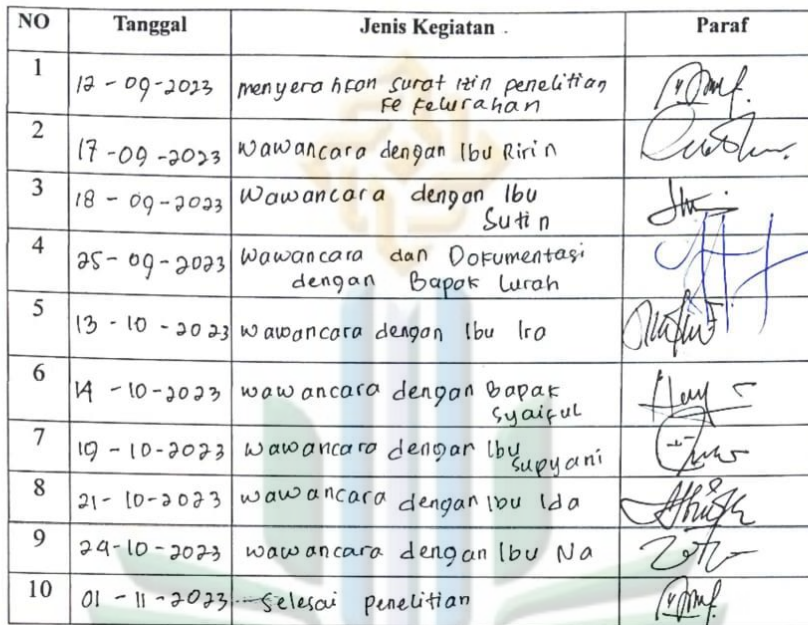 NO Tanggal Jenis Kegiatan Paraf
1 12 - 09 - 2023 menyerahkan surat izin penelitian
ke kelurahan
2 17 - 09 - 2023 wawancara dengan Ibu Ririn
3 18 - 09 - 2023 wawancara dengan Ibu
Sutin
4 25 - 09 - 2023 wawancara dan Dokumentasi
dengan Bapak Lurah
5 13 - 10 - 2023 wawancara dengan Ibu Ira
6 14 - 10 - 2023 wawancara dengan Bapak
Syaiful
7 19 - 10 - 2023 wawancara dengan Ibu
Supyani
8 21 - 10 - 2023 wawancara dengan Ibu Ida
9 24 - 10 - 2023 wawancara dengan Ibu Na
10 01 - 11 - 2023 Selesai penelitian